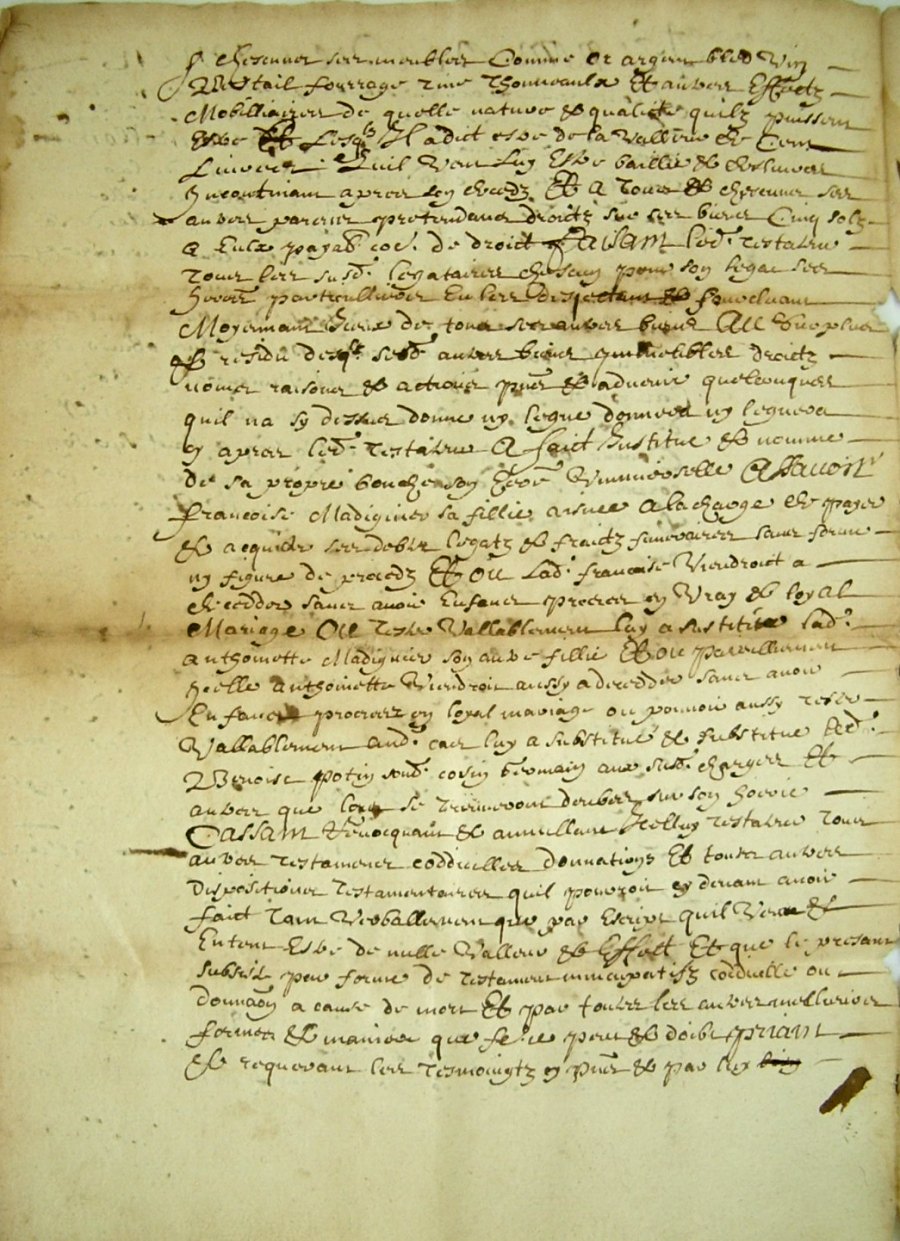 chescuns ses meubles comme or argent bled vin
Bestail fourrage vin Thonneaulx Et autres Effectz
Mobilliaires de quelle nature & qualitte quilz puissent
Estre Et Lesqlz Il a dict estre de la valleur de Cent
Livres quil veut luy Estre baillie &
Incontinant apres son decedz Et a Tous & chescuns ses
autres parens pretendans droictz sur ses biens Cinq solz
a Eulx payab de droict Faisant led. testateur
Tous les susd. legataires chescung pour son legat ses
heoirs particulliers En les & forcluant
Moyennant de tous ses autres biens Au surplus
& residu desqlz sesd. autres biens meubles droictz
noms raisons & actions pnts & advenir quelconques
quil na sy dessus donne ny legue donnera ny leguera
cy apres led. testateur A faict Institue & nomme
de sa propre bouche son heoir Universelle Assavoir
francoise Madiginier sa fillie aisnee A la charge de payer
& acquiter ses debtes legatz & fraictz funeraires sans forme
ny figure de procedz Et ou Lad. francoise Viendroict a
decedder sans avoir Enfans procrees en Vray & loyal
Mariage Ou tester Vallablement luy a substitue lad.
anthoinette Madiginier son autre fillie Et ou pareillement
Icelle anthoinette Viendroit aussy a decedder sans avoir
Enfans procrees en loyal mariage ou pouvoir aussy tester
Vallablement aud. cas luy a substitué & substitue led.
Benoist potin sond. cosin Germain aux susd. charges Et
autres que lors se treuveront deubes sur son hoirie
Cassant Revocquant & annullant Icelluy testateur Tous
autres testamens coddicilles donnations Et toutes autres
dispositions testamentaires quil pourroit cy devant avoir
faict Tant Verballement que par Escript quil Veut &
Entent Estre de nulle Valleur & Effect Et que le presant
subsiste par forme de testament nuncupatifz coddicille ou
donnaon a cause de mort Et par toutes les autres meilleures
formes & maniere que se peut & doibt priant
& requerant les tesmoingtz cy pnts & par luy